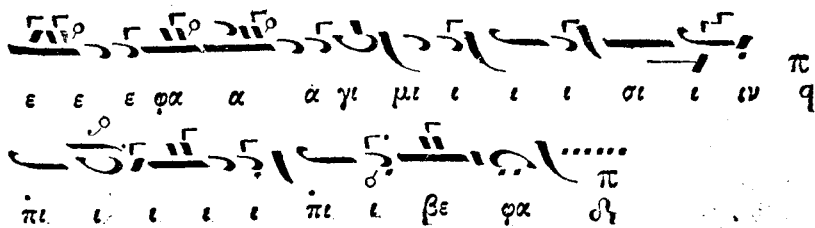 ε ε ε φα α ά γι μι ι ι ι σι ι ιν π q
πι ι ι ι ι πι ι βε φα π